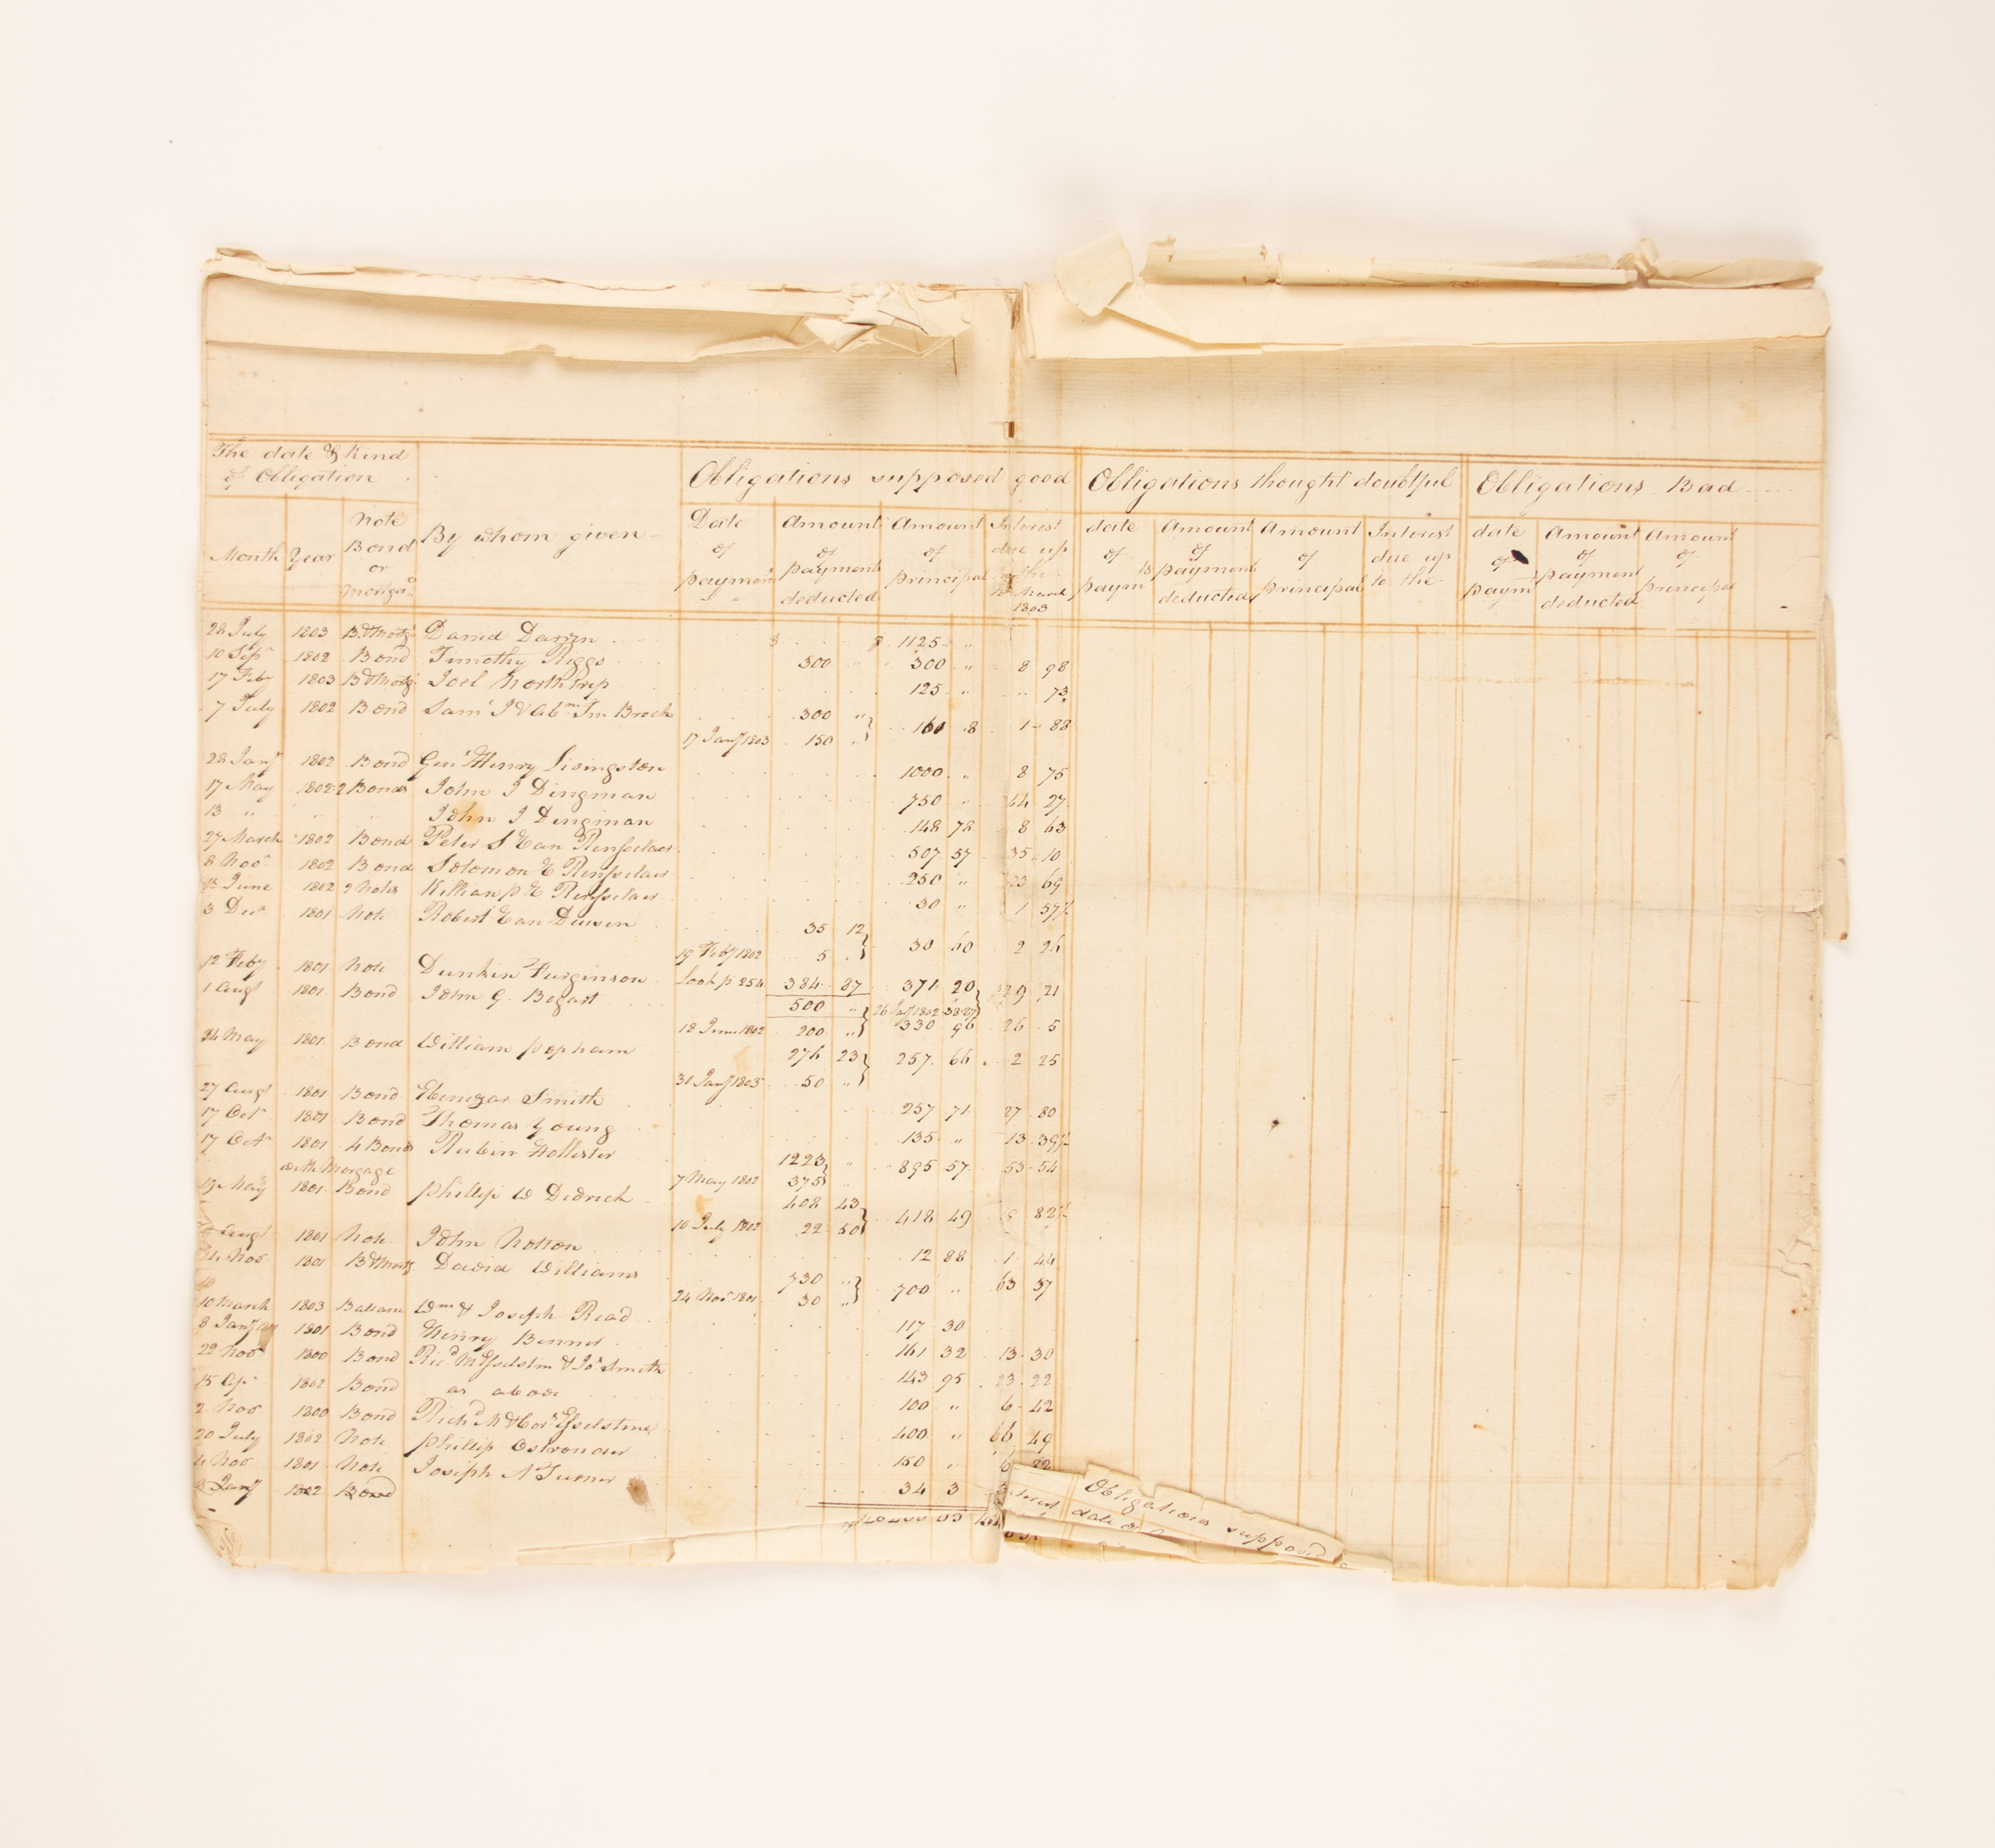 The date & Kind
of Obligation
Obligations supposed good
Obligations thought doubtful
Obligations Bad
Month Year Note Bond or Morga.
By whom given
Date of payment
Amount of payment deducted
Amount of principal
Interest due up to the March 1803
date of paym
Amount of payment deducted
Amount of principal
Interest due up to the
date of paym
Amount of payment deducted
Amount of principal
28 July 1803 B. & Mortg. David $ $ 1125 "
10 Sepr 1802 Bond Timothy Riggs 300 " 300 " 8 98
17 Feby 1803 B & Mortg. Joel Northrup 125 " " 73
7 July 1802 Bond Saml J & Abm Brock 300 "
17 Jany 1803 150 " 160 8 1 88
28 Jany 1802 Bond Genl Henry Livingston 1000 " 8 75
17 May 1802 2 Bonds John J Dingman 750 " 64 27
13 " " " John J Dingman 148 78 8 63
27 March 1802 Bond Peter S Van Rensselaer 507 57 35 10
8 Nov 1802 Bond Solomon V Rensselaer 250 " 69
15 June 1802 2 Notes Killian p V Rensselaer 30 " 1 57½
3 Decr 1801 Note Robert Van Deusen 35 12
19 Feby 1802 5 " 30 60 2 26
12 Feby 1801 Note Dunkin Furginson look p 254 384 87 371 20 29 21
1 Augt 1801 Bond John G. Bogart 500 " 26 Jany 1802
18 June 1802 200 " 330 96 26 5
24 May 1801 Bond William popham 276 23 257 66 2 25
31 Jany 1803 50 "
27 Augt 1801 Bond Ebenezar Smith 257 71 27 80
17 Octr 1801 Bond Thomas Young 135 " 13 39½
17 Octr 1801 4 Bonds Rubin Hollister 1223 " 895 57 53 54
with Morgage 7 May 1802 375 "
19 May 1801 Bond phillip W Didrick 408 43
10 July 1802 22 50 418 49 82½
Augt 1801 Note John Notton 12 88 1 44
24 Nov 1801 B & Mortg David Williams 730 " 700 " 63 37
24 Nov 1801 30 "
10 March 1803 Baleanc Wm & Joseph Read 117 30
8 Jany 1801 Bond Henry Benner 161 32 13 30
22 Nov 1800 Bond Ricd M Esselstin & Jos Smith 143 95 23 22
15 Ap 1802 Bond as above 100 " 6 42
2 Nov 1800 Bond Richd M & Cor Esselstine 400 " 66 49
20 July 1802 Note phillip Ostronder 150 " 6
4 Nov 1801 Note Joseph N Turner 34 3
Jany 1802 Bond
Obligations supposed
date of